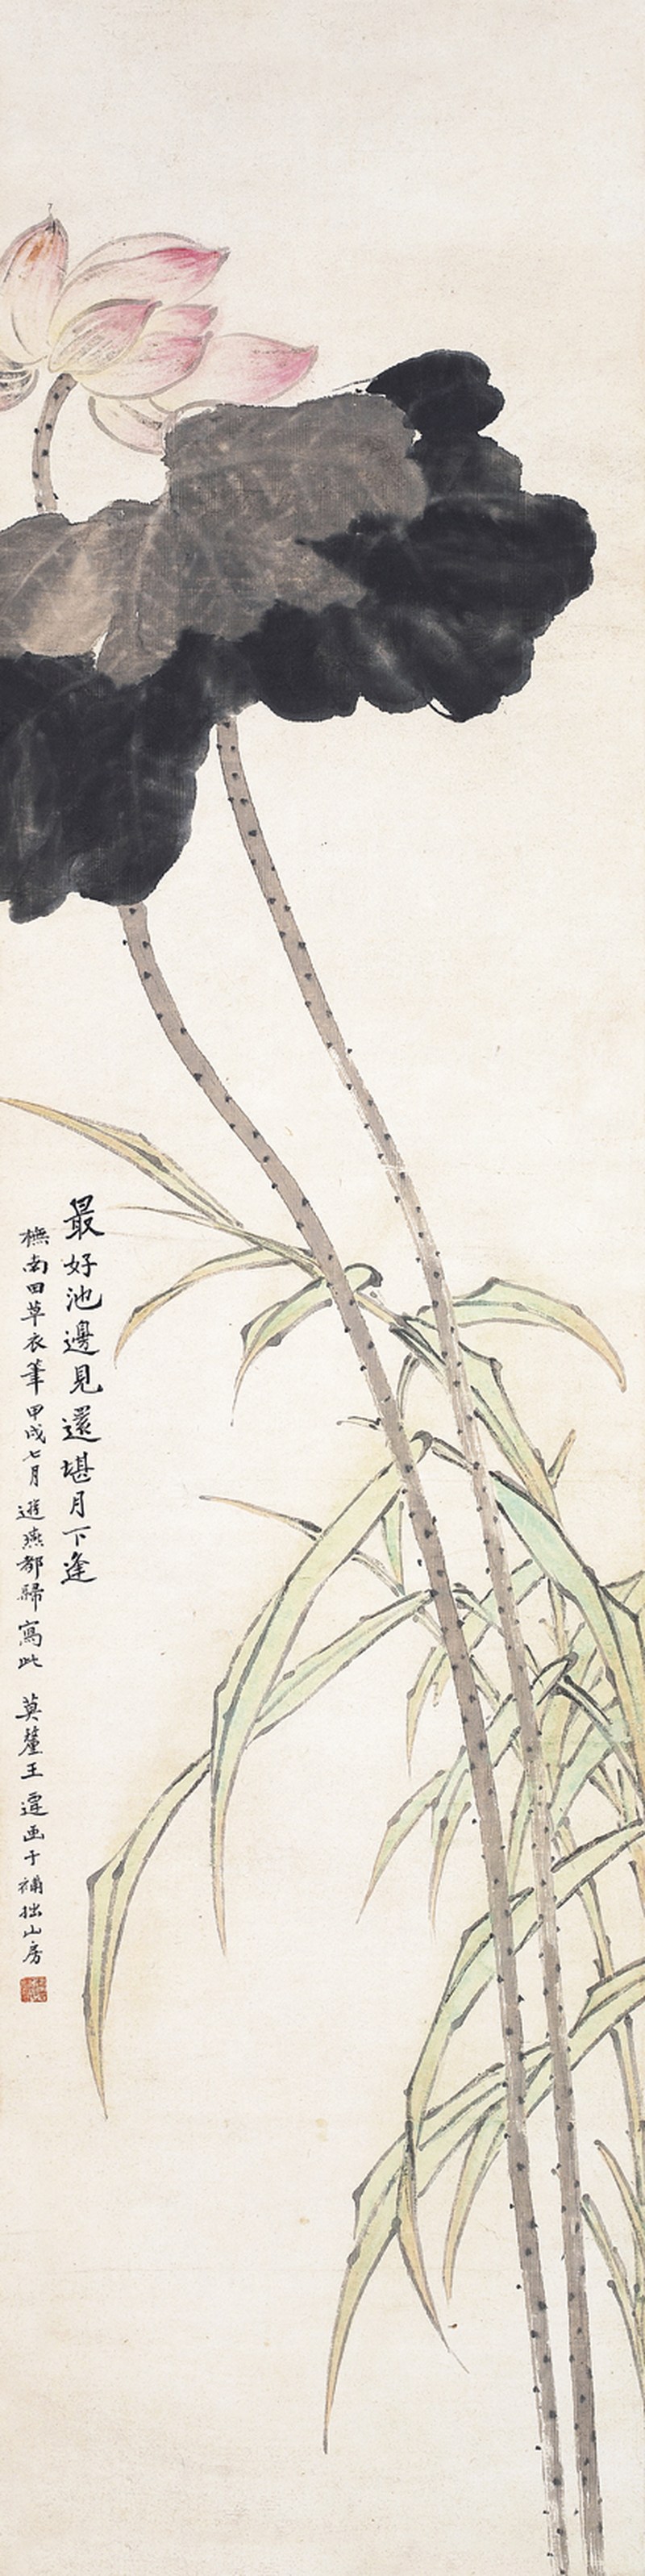 最好池邊見還堪月下逢
橅南田草衣筆甲戌七月遊燕都歸寫此莫釐王畫于補拙山房